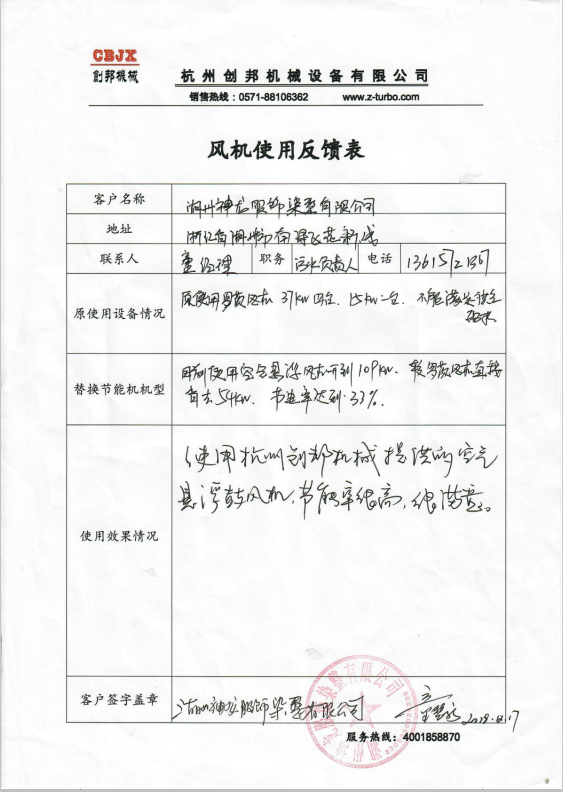 CBJX
創邦機械
杭州创邦机械设备有限公司
销售热线：0571-88106362 www.z-turbo.com
风机使用反馈表
客户名称 湖州神龙服饰染整有限公司
地址 浙江省湖州
联系人 经理 职务 污水负责人 电话
原使用设备情况 原使用罗茨风机 37kw四台. 15kw一台. 不能满足供气
替换节能机机型 目前使用空气悬浮风机开到109kw. 较罗茨风机直接
节省54kw. 节电率达到.33%.
使用效果情况 使用杭州创邦机械提供的空气
悬浮鼓风机,节能率很高,很满意。
客户签字盖章 湖州神龙服饰染整有限公司
服务热线：4001858870